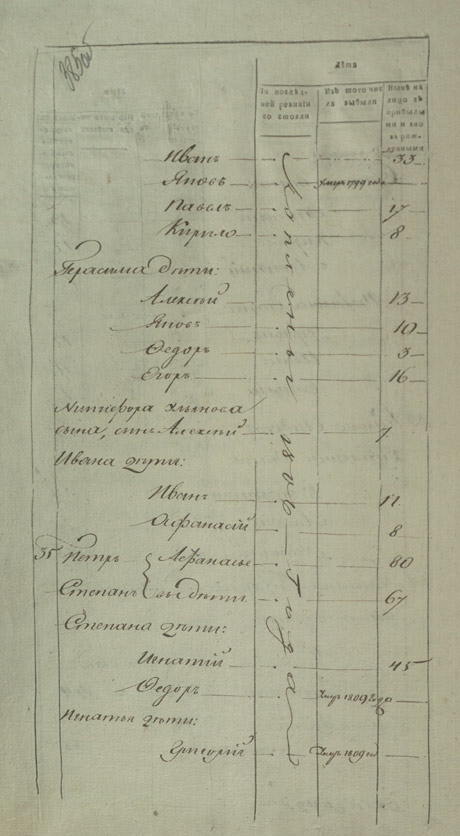 Лѣта
По послѣд-
ней ревизіи
состояли
Изъ того чис-
ла выбыли
Нынѣ на
лицо съ
прибылы-
ми и
рож-
денными
Иванъ 33
Яковъ умеръ 1799 года
Павелъ 17
Кирило 8
Герасима дѣти:
Алексѣй 13
Яковъ 10
Ѳедоръ 3
Егоръ 16
Никифора
сына, сынъ Алексѣй 7
Ивана дѣти:
Иванъ 11
Аѳанасій 8
35 Петръ Аѳанасье 80
Степанъ вы дѣти 67
Степана дѣти:
Игнатій 45
Ѳедоръ умеръ 1809 года
Игнатья дѣти:
Григорій умеръ 1809 го
года